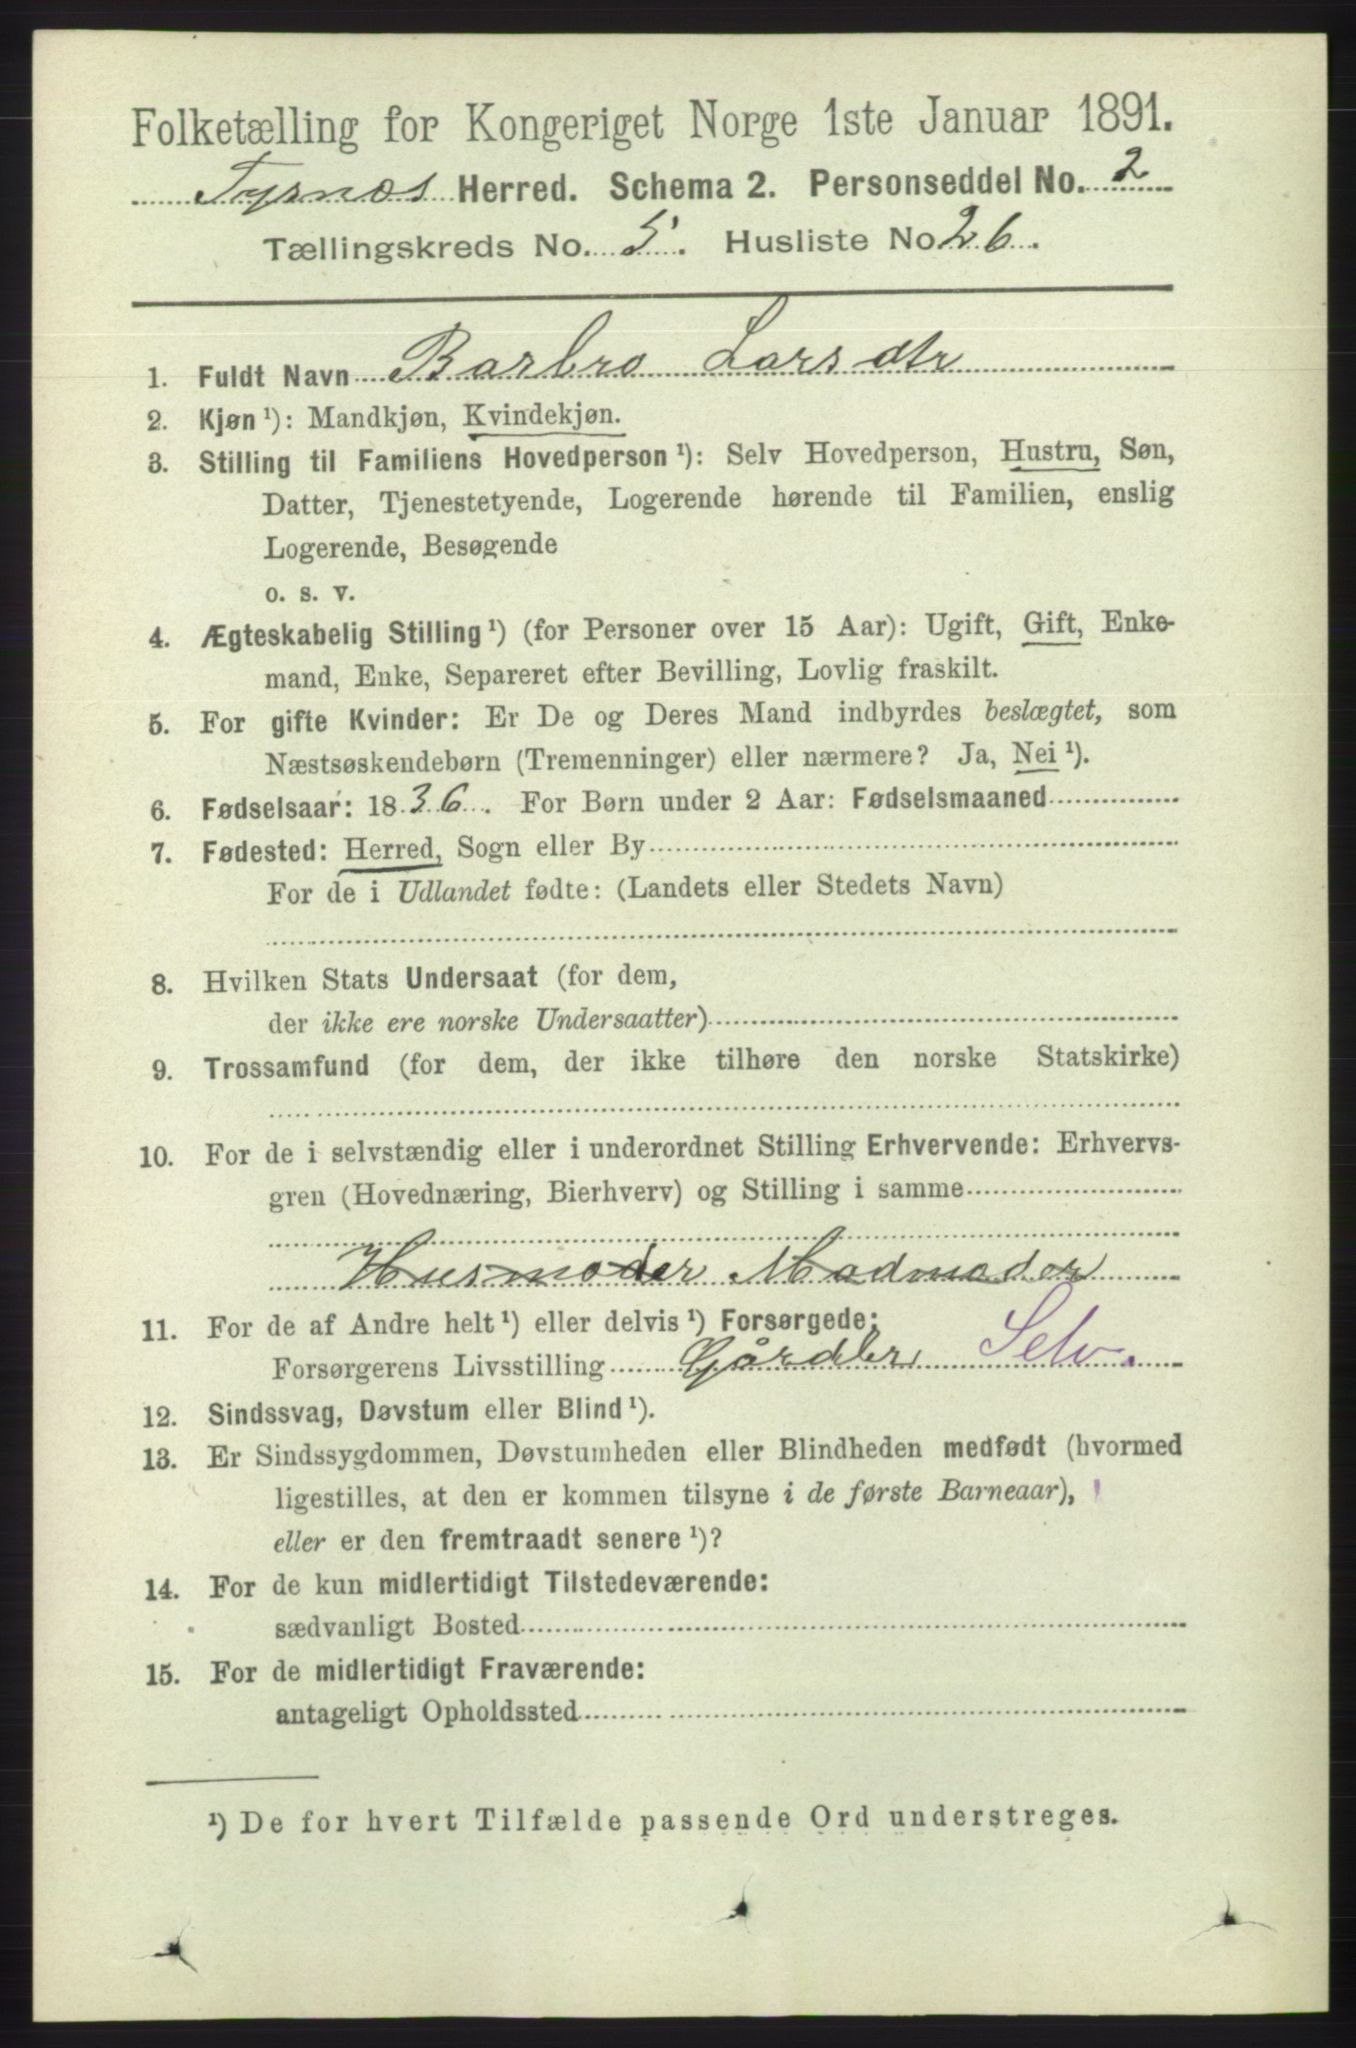 Folketælling for Kongeriget Norge 1ste Januar 1891.
Tysnæs Herred. Schema 2. Personseddel No. 2
Tællingskreds No. 5. Husliste No 26.
1. Fuldt Navn Barbro Larsdtr
2. Kjøn ¹): Mandkjøn, Kvindekjøn.
3. Stilling til Familiens Hovedperson ¹): Selv Hovedperson, Hustru, Søn,
Datter, Tjenestetyende, Logerende hørende til Familien, enslig
Logerende, Besøgende
o. s. v.
4. Ægteskabelig Stilling ¹) (for Personer over 15 Aar): Ugift, Gift, Enke-
mand, Enke, Separeret efter Bevilling, Lovlig fraskilt.
5. For gifte Kvinder: Er De og Deres Mand indbyrdes beslægtet, som
Næstsøskendebørn (Tremenninger) eller nærmere? Ja, Nei ¹).
6. Fødselsaar: 1836. For Børn under 2 Aar: Fødselsmaaned
7. Fødested: Herred, Sogn eller By
For de i Udlandet fødte: (Landets eller Stedets Navn)
8. Hvilken Stats Undersaat (for dem,
der ikke ere norske Undersaatter)
9. Trossamfund (for dem, der ikke tilhøre den norske Statskirke)
10. For de i selvstændig eller i underordnet Stilling Erhvervende: Erhvervs-
gren (Hovednæring, Bierhverv) og Stilling i samme
Husmoder Madmoder
11. For de af Andre helt ¹) eller delvis ¹) Forsørgede:
Forsørgerens Livsstilling Gårdbr Selv.
12. Sindssvag, Døvstum eller Blind ¹).
13. Er Sindssygdommen, Døvstumheden eller Blindheden medfødt (hvormed
ligestilles, at den er kommen tilsyne i de første Barneaar),
eller er den fremtraadt senere ¹)?
14. For de kun midlertidigt Tilstedeværende:
sædvanligt Bosted
15. For de midlertidigt Fraværende:
antageligt Opholdssted
¹) De for hvert Tilfælde passende Ord understreges.